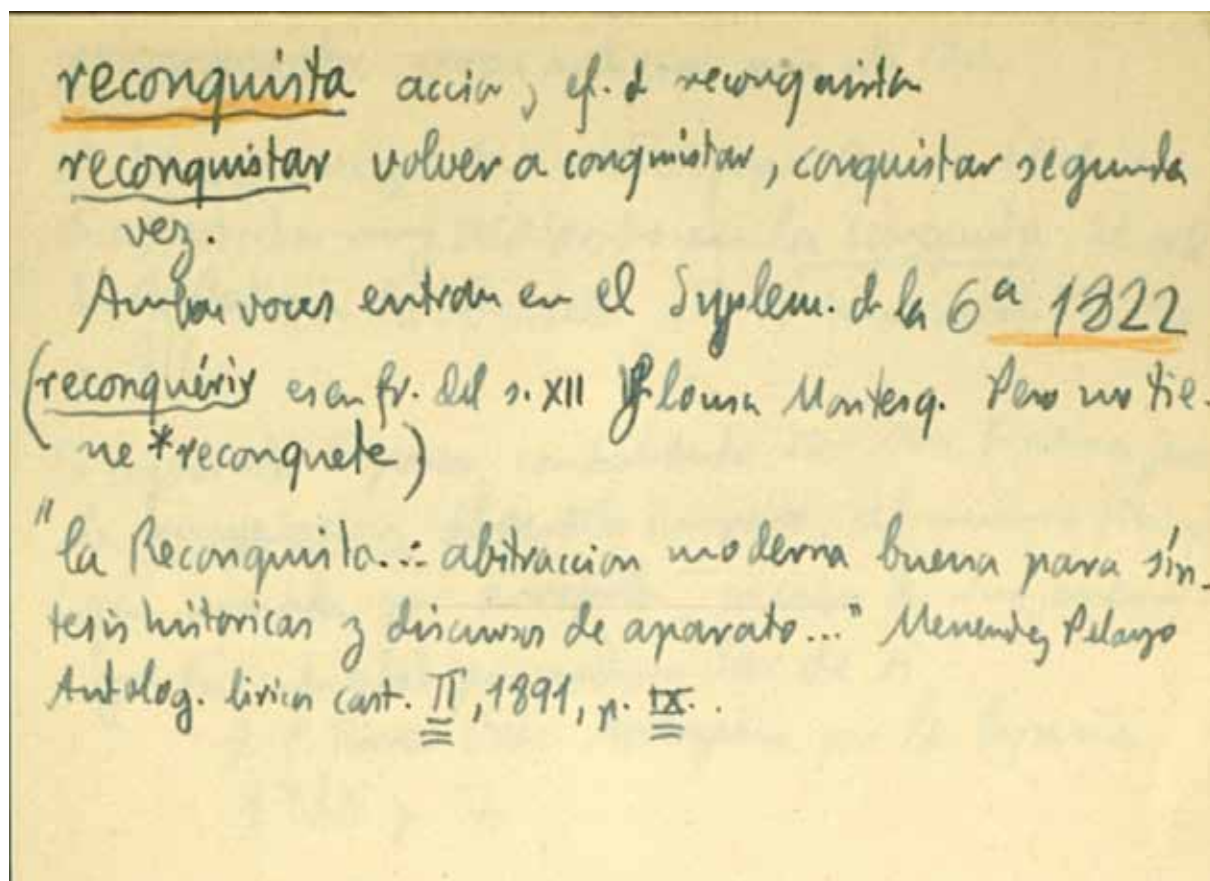 reconquista accion y ef. d reconquistar
reconquistar volver a conquistar, conquistar segunda
vez.
Ambas voces entran en el Suplem. d la 6ª 1822
(reconquérir es en fr. del s. XII y lo usa Montesq. Pero no tie-
ne *reconquete)
"la Reconquista...: abstraccion moderna buena para sín-
tesis historicas y discursos de aparato..." Menendez Pelayo
Antolog. liricos cast. II, 1891, p. IX.